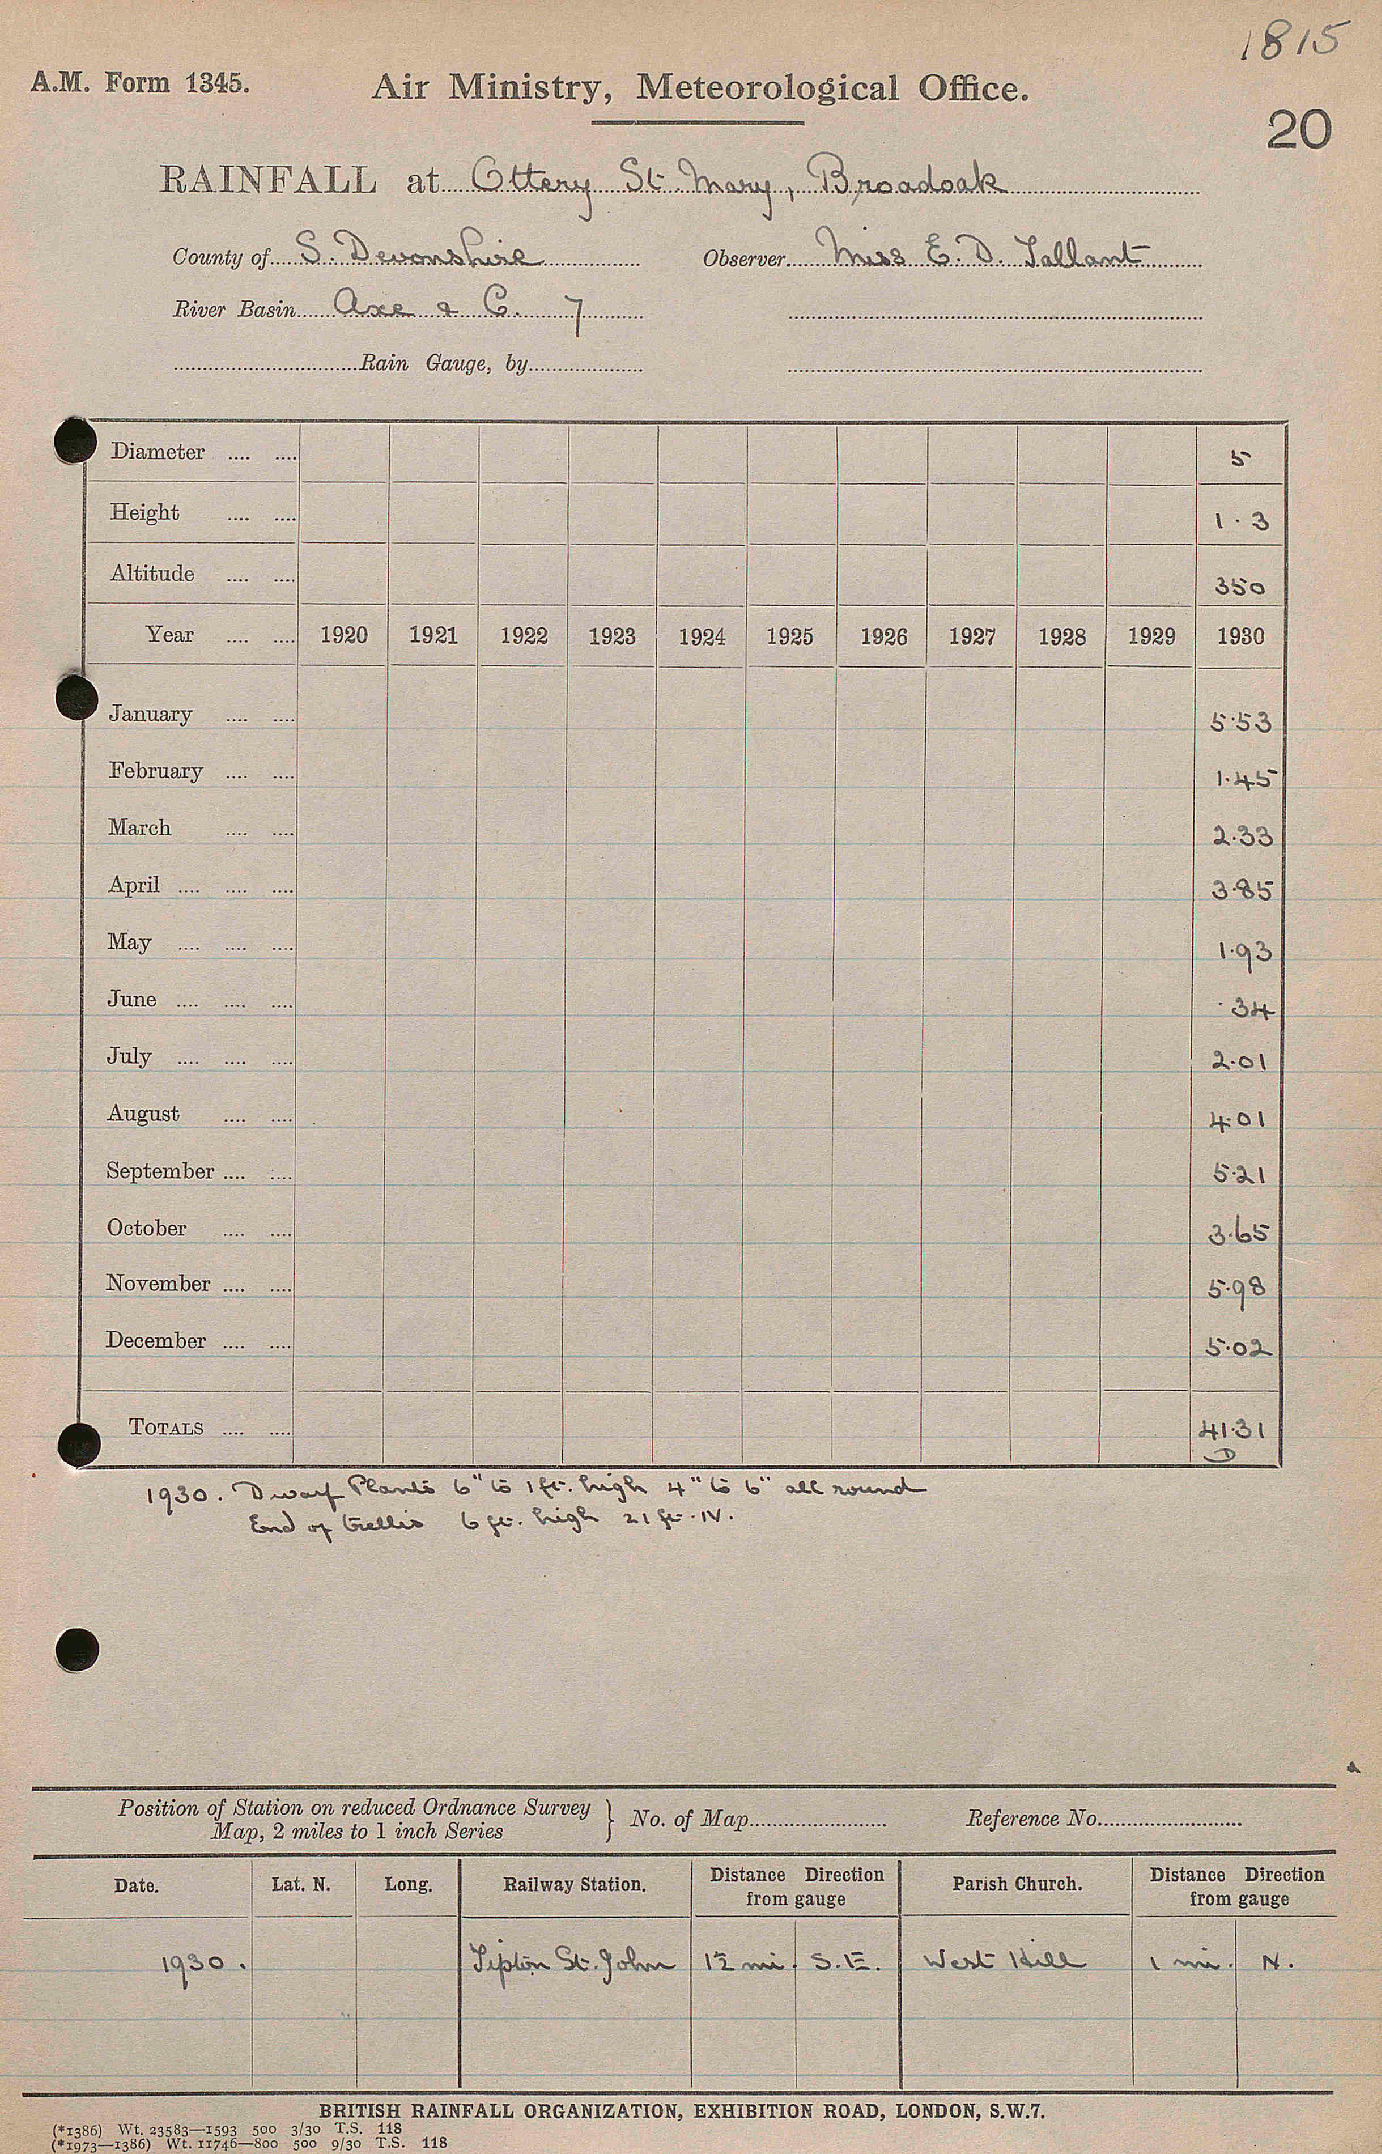 1815
A.M. Form 1345. Air Ministry, Meteorological Office.
20
RAINFALL at Ottery St. Mary, Broadoak
County of S. Devonshire Observer Miss E. D. Tallant
River Basin Axe & C. 7
Rain Gauge, by
Diameter .... .... 5
Height .... .... 1.3
Altitude .... .... 350
Year .... .... 1920 1921 1922 1923 1924 1925 1926 1927 1928 1929 1930
January .... .... 5.53
February .... .... 1.45
March .... .... 2.33
April .... .... .... 3.85
May .... .... .... 1.93
June .... .... .... .34
July .... .... .... 2.01
August .... .... 4.01
September .... .... 5.21
October .... .... 3.65
November .... .... 5.98
December .... .... 5.02
TOTALS .... .... 41.31
D
1930. Dwarf Plants 6" to 1 ft. high 4" to 6" all round
End of trellis 6 ft. high 21 ft. IV.
Position of Station on reduced Ordnance Survey
Map, 2 miles to 1 inch Series } No. of Map Reference No.
Date. Lat. N. Long. Railway Station. Distance Direction from gauge Parish Church. Distance Direction from gauge
1930. Tipton St. John mi. S.E. West Hill 1 mi. N.
BRITISH RAINFALL ORGANIZATION, EXHIBITION ROAD, LONDON, S.W.7.
(*1386) Wt. 23583—1593 500 3/30 T.S. 118
(*1973—1386) Wt. 11746—800 500 9/30 T.S. 118